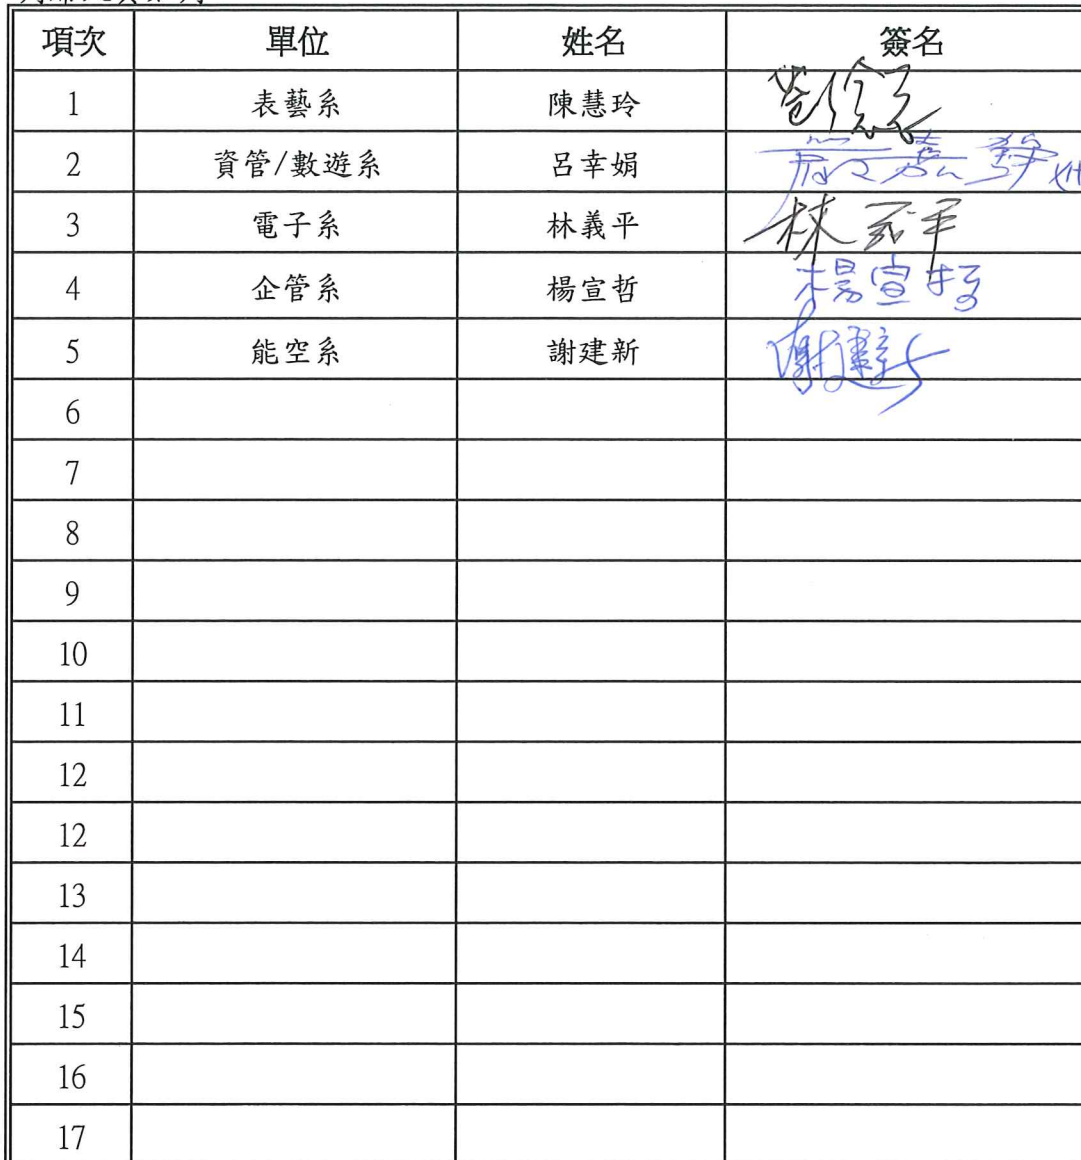 項次 單位 姓名 簽名
1 表藝系 陳慧玲
2 資管/數遊系 呂幸娟
3 電子系 林義平 林義平
4 企管系 楊宣哲 楊宣哲
5 能空系 謝建新 謝建新
6
7
8
9
10
11
12
12
13
14
15
16
17